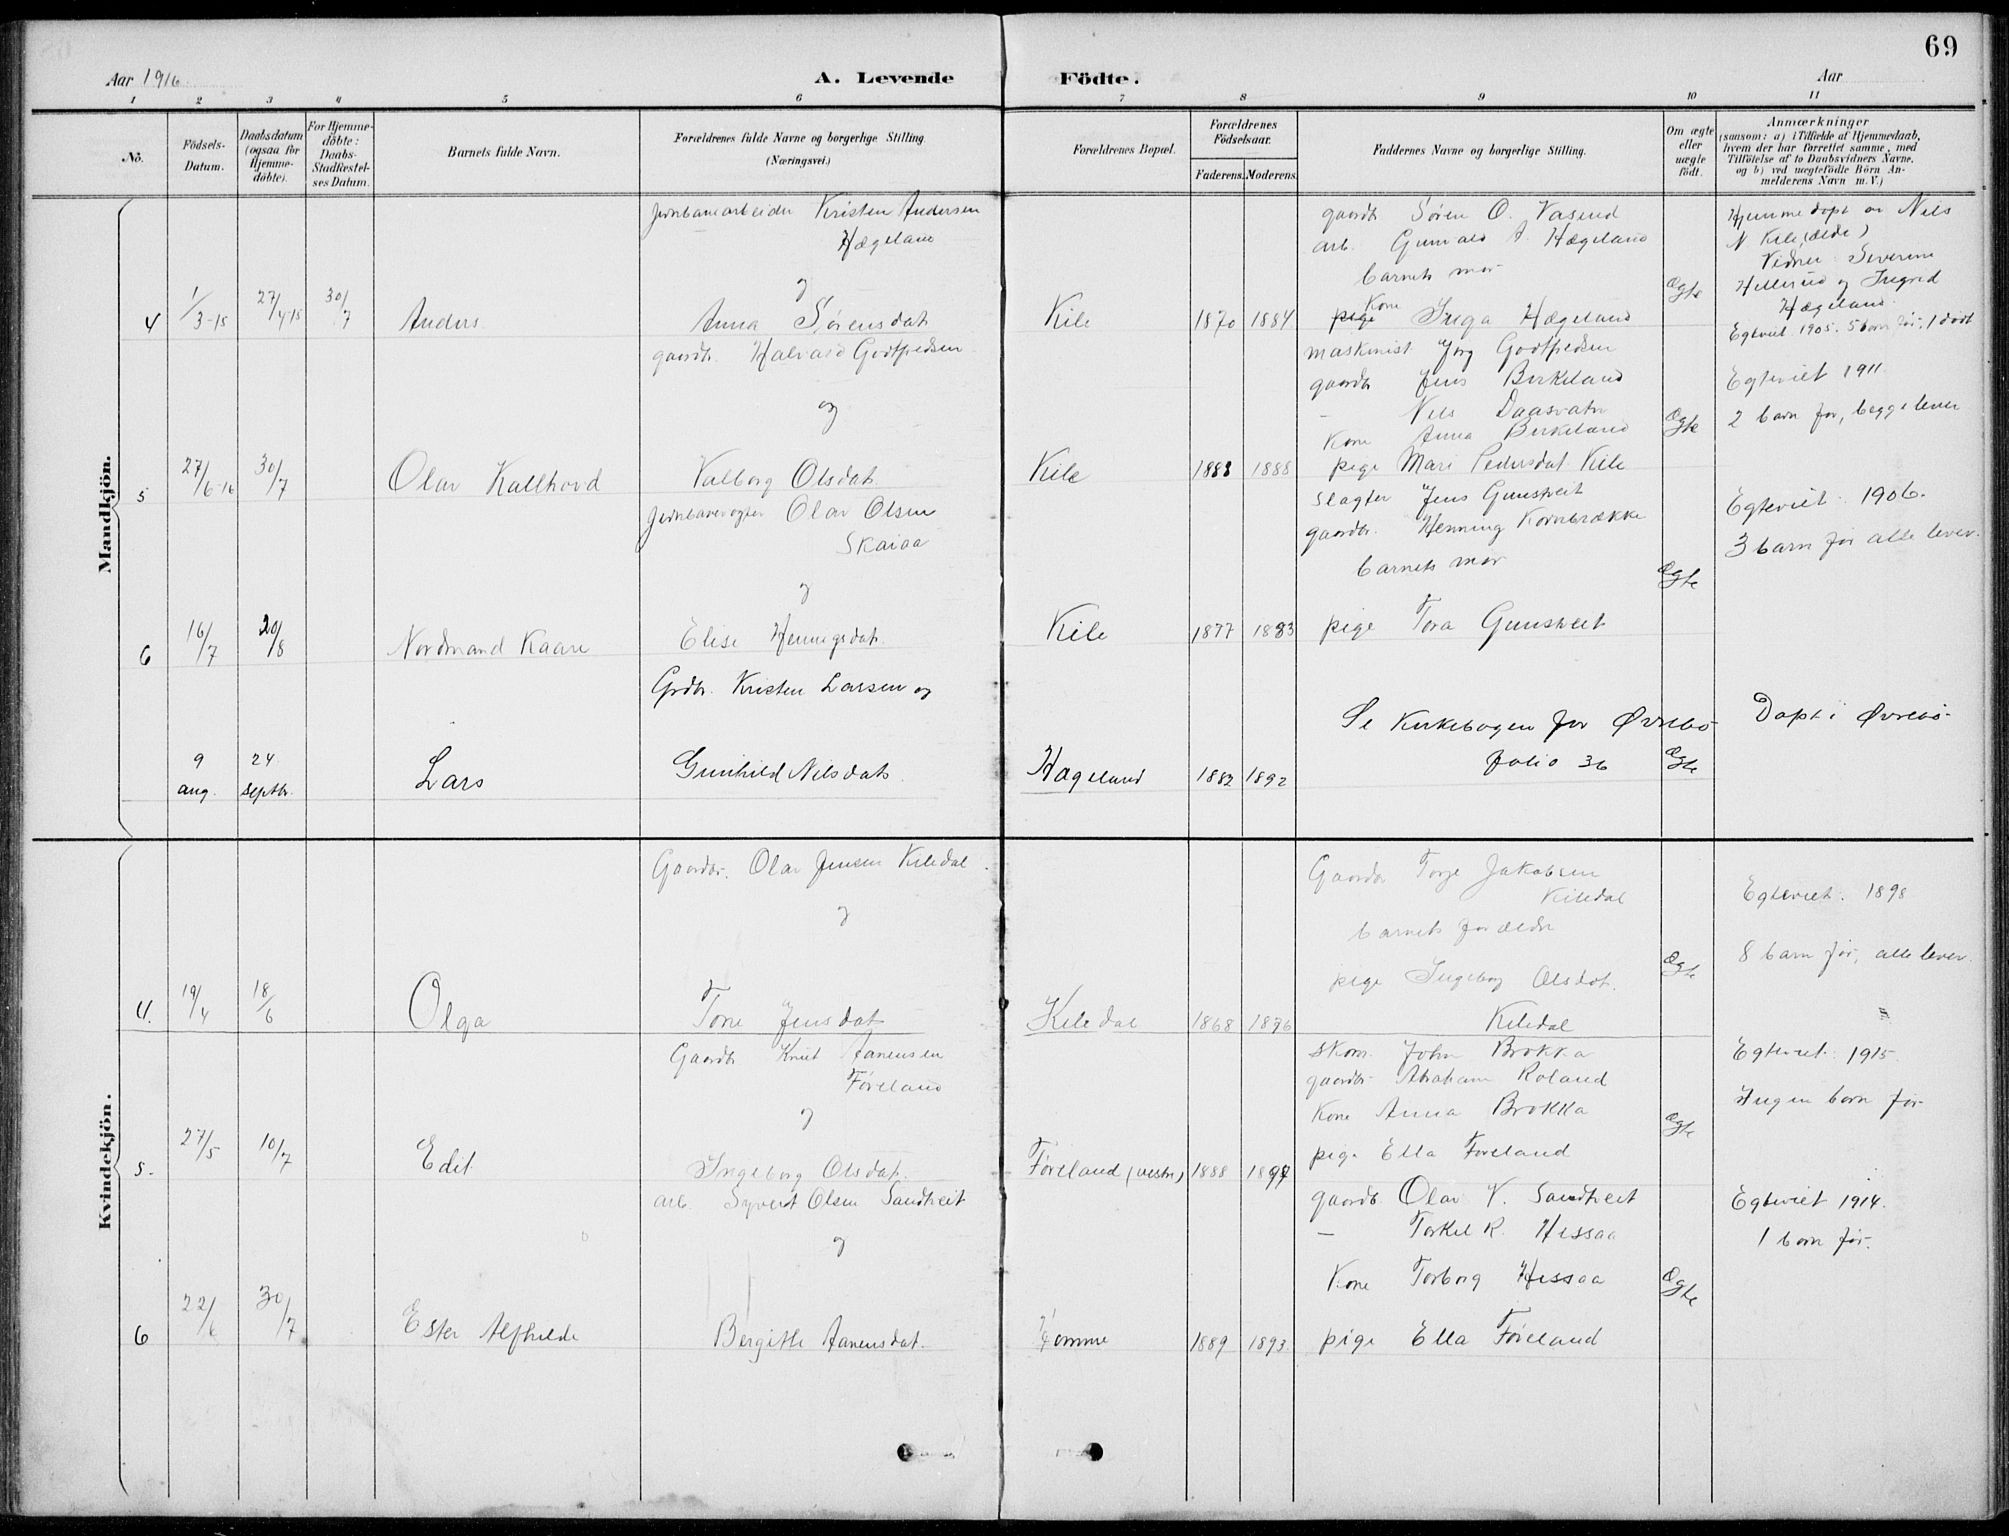 69
Aar 1916
A. Levende
Födte.
Aar
1 2 3 4 5 6 7 8 9 10 11
No.
Födsels-Datum.
Daabsdatum (ogsaa for Hjemme-döbte).
For Hjemme-döbte: Daabs-Stadfæstel-ses Datum.
Barnets fulde Navn.
Forældrenes fulde Navne og borgerlige Stilling. (Næringsvei.)
Forældrenes Bopæl.
Forældrenes Födselsaar.
Faderens. Moderens.
Faddernes Navne og borgerlige Stilling.
Om ægte eller uægte födt.
Anmærkninger
(saasom: a) i Tilfælde af Hjemmedaab, hvem der har forrettet samme, med Tilföielse af to Daabsvidners Navne. og b) ved uægtefödte Börn An-melderens Navn m. V.)
Mandkjön.
4
1/3-15
27/4-15
30/7
Anders
Jernbanearbeider Kristen Andersen
Hægeland
og
Anna Sørensdat.
Kile
1870 1884
gaardb. Søren O. Vasend
arb. Gunvald A. Hægeland
barnets mor
Kone
pige Inga Hægeland
Ægte
Hjemmedøpt av Nils
N Kile (ælde)
Vidner: Severine
Hillerud og Ingrid
Hægeland
Egteviet 1905. 5 barn før, 1 død
5
27/6-16
30/7
Olav Kallhovd
gaardb. Halvard Godtfredsen
og
Valborg Olsdat.
Kile
1883 1888
maskinist Jørg Godtfredsen
gaardb. Jens Birkeland
— Nils Daasvatn
Kone Anna Birkeland
pige Mari Pedersdat. Kile
Ægte
Egteviet 1911.
2 barn før, begge lever
6
16/7
20/8
Nordmand Kaare
Jernbanevogter Olav Olsen
Skaiaa
og
Elise Henningsdat.
Kile
1877 1883
Slagter Jens Gunstveit
gaardbr. Henning Kornbrække
barnets mor
pige Tora Gunstveit
Ægte
Egteviet: 1906.
3 barn før alle lever.
9 aug.
24 septbr.
Lars
Grdbr. Kristen Larsen og
Gunhild Nilsdatr.
Hægeland
1882 1892
Se Kirkebogen for Øvrebø
folio 36
Ægte
Døpt i Øvrebø
Kvindekjön.
4.
19/4
18/6
Olga
Gaardbr. Olav Jensen Kiledal
og
Tone Jensdat
Kiledal
1868 1876
Gaardb Torje Jakobsen
Kiledal
barnets forældre
pige Ingeborg Olsdat.
Kiledal
Ægte
Egteviet: 1898
8 barn før, alle lever.
5.
27/5
10/7
Edit
Gaardb Knut Aanensen
Føreland
og
Ingeborg Olsdat.
Føreland (vestre)
1888 1897
Skom. John Brokka
gaardbr. Abraham Roland
Kone Anna Brokka
pige Ella Føreland
Ægte
Egteviet: 1915.
Ingen barn før
6
22/6
30/7
Ester Alfhilde
arb. Syvert Olsen Sandtveit
og
Bergitte Aanensdat.
Homme
1889 1893
gaardb. Olav K. Sandtveit
— Torkel R. Hessaa
Kone Torborg Hessaa
pige Ella Føreland
Ægte
Egteviet 1914.
1 barn før.